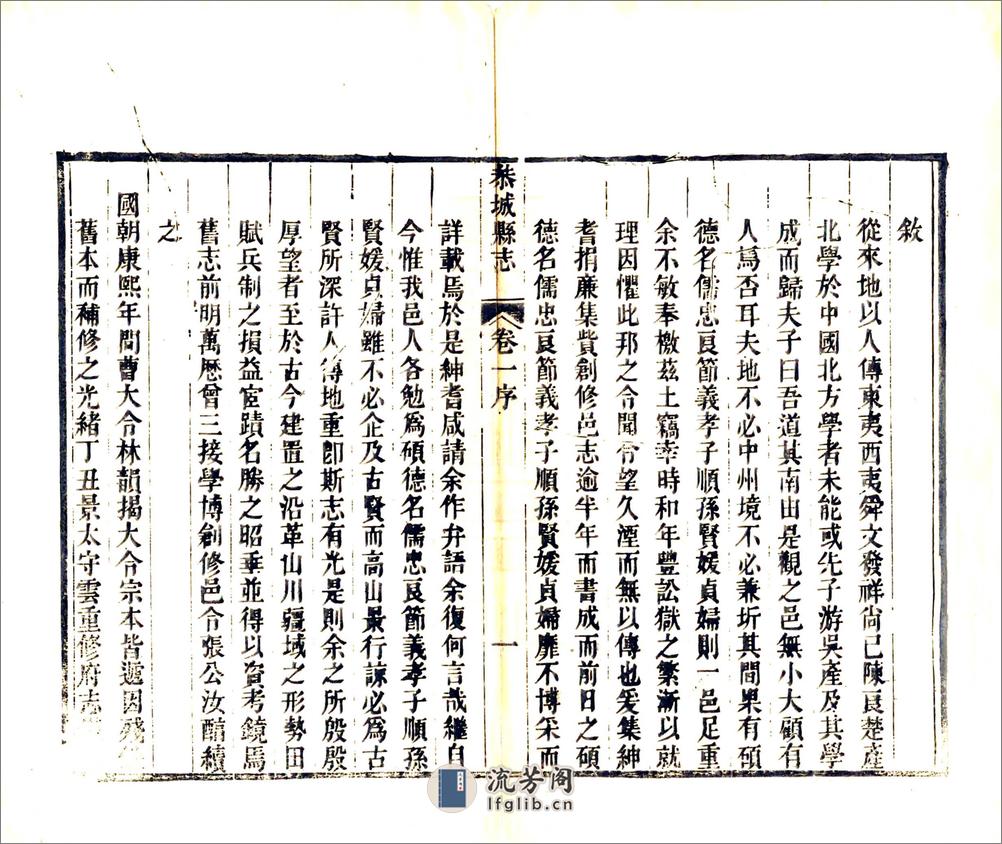 敘
從來地以人傳東夷西夷舜文發祥尙已陳良楚產
北學於中國北方學者未能或先子游吳產及其學
成而歸夫子曰吾道其南由是觀之邑無小大顧有
人焉否耳夫地不必中州境不必兼圻其間果有碩
德名儒忠良節義孝子順孫賢媛貞婦則一邑足重
余不敏奉檄茲土竊幸時和年豐訟獄之繁漸以就
理因懼此邦之令聞令望久湮而無以傳也爰集紳
耆捐廉集貲創修邑志逾半年而書成而前日之碩
德名儒忠良節義孝子順孫賢媛貞婦靡不博采而
恭城縣志
卷一序
一
詳載焉於是紳耆咸請余作弁語余復何言哉繼自
今惟我邑人各勉爲碩德名儒忠良節義孝子順孫
賢媛貞婦雖不必企及古賢而高山景行諒必爲古
賢所深許人傳地重卽斯志有光是則余之所殷殷
厚望者至於古今建置之沿革山川疆域之形勢田
賦兵制之損益宦蹟名勝之昭垂並得以資考鏡焉
舊志前明萬歷曾三接學博創修邑令張公汝醕續
之
國朝康熙年間曹大令林韻揭大令宗本皆遞因殘
舊本而補修之光緒丁丑景太守雲重修府志
流芳阁
lfglib.cn